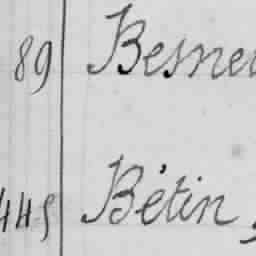 89 Besne
445 Bétin,